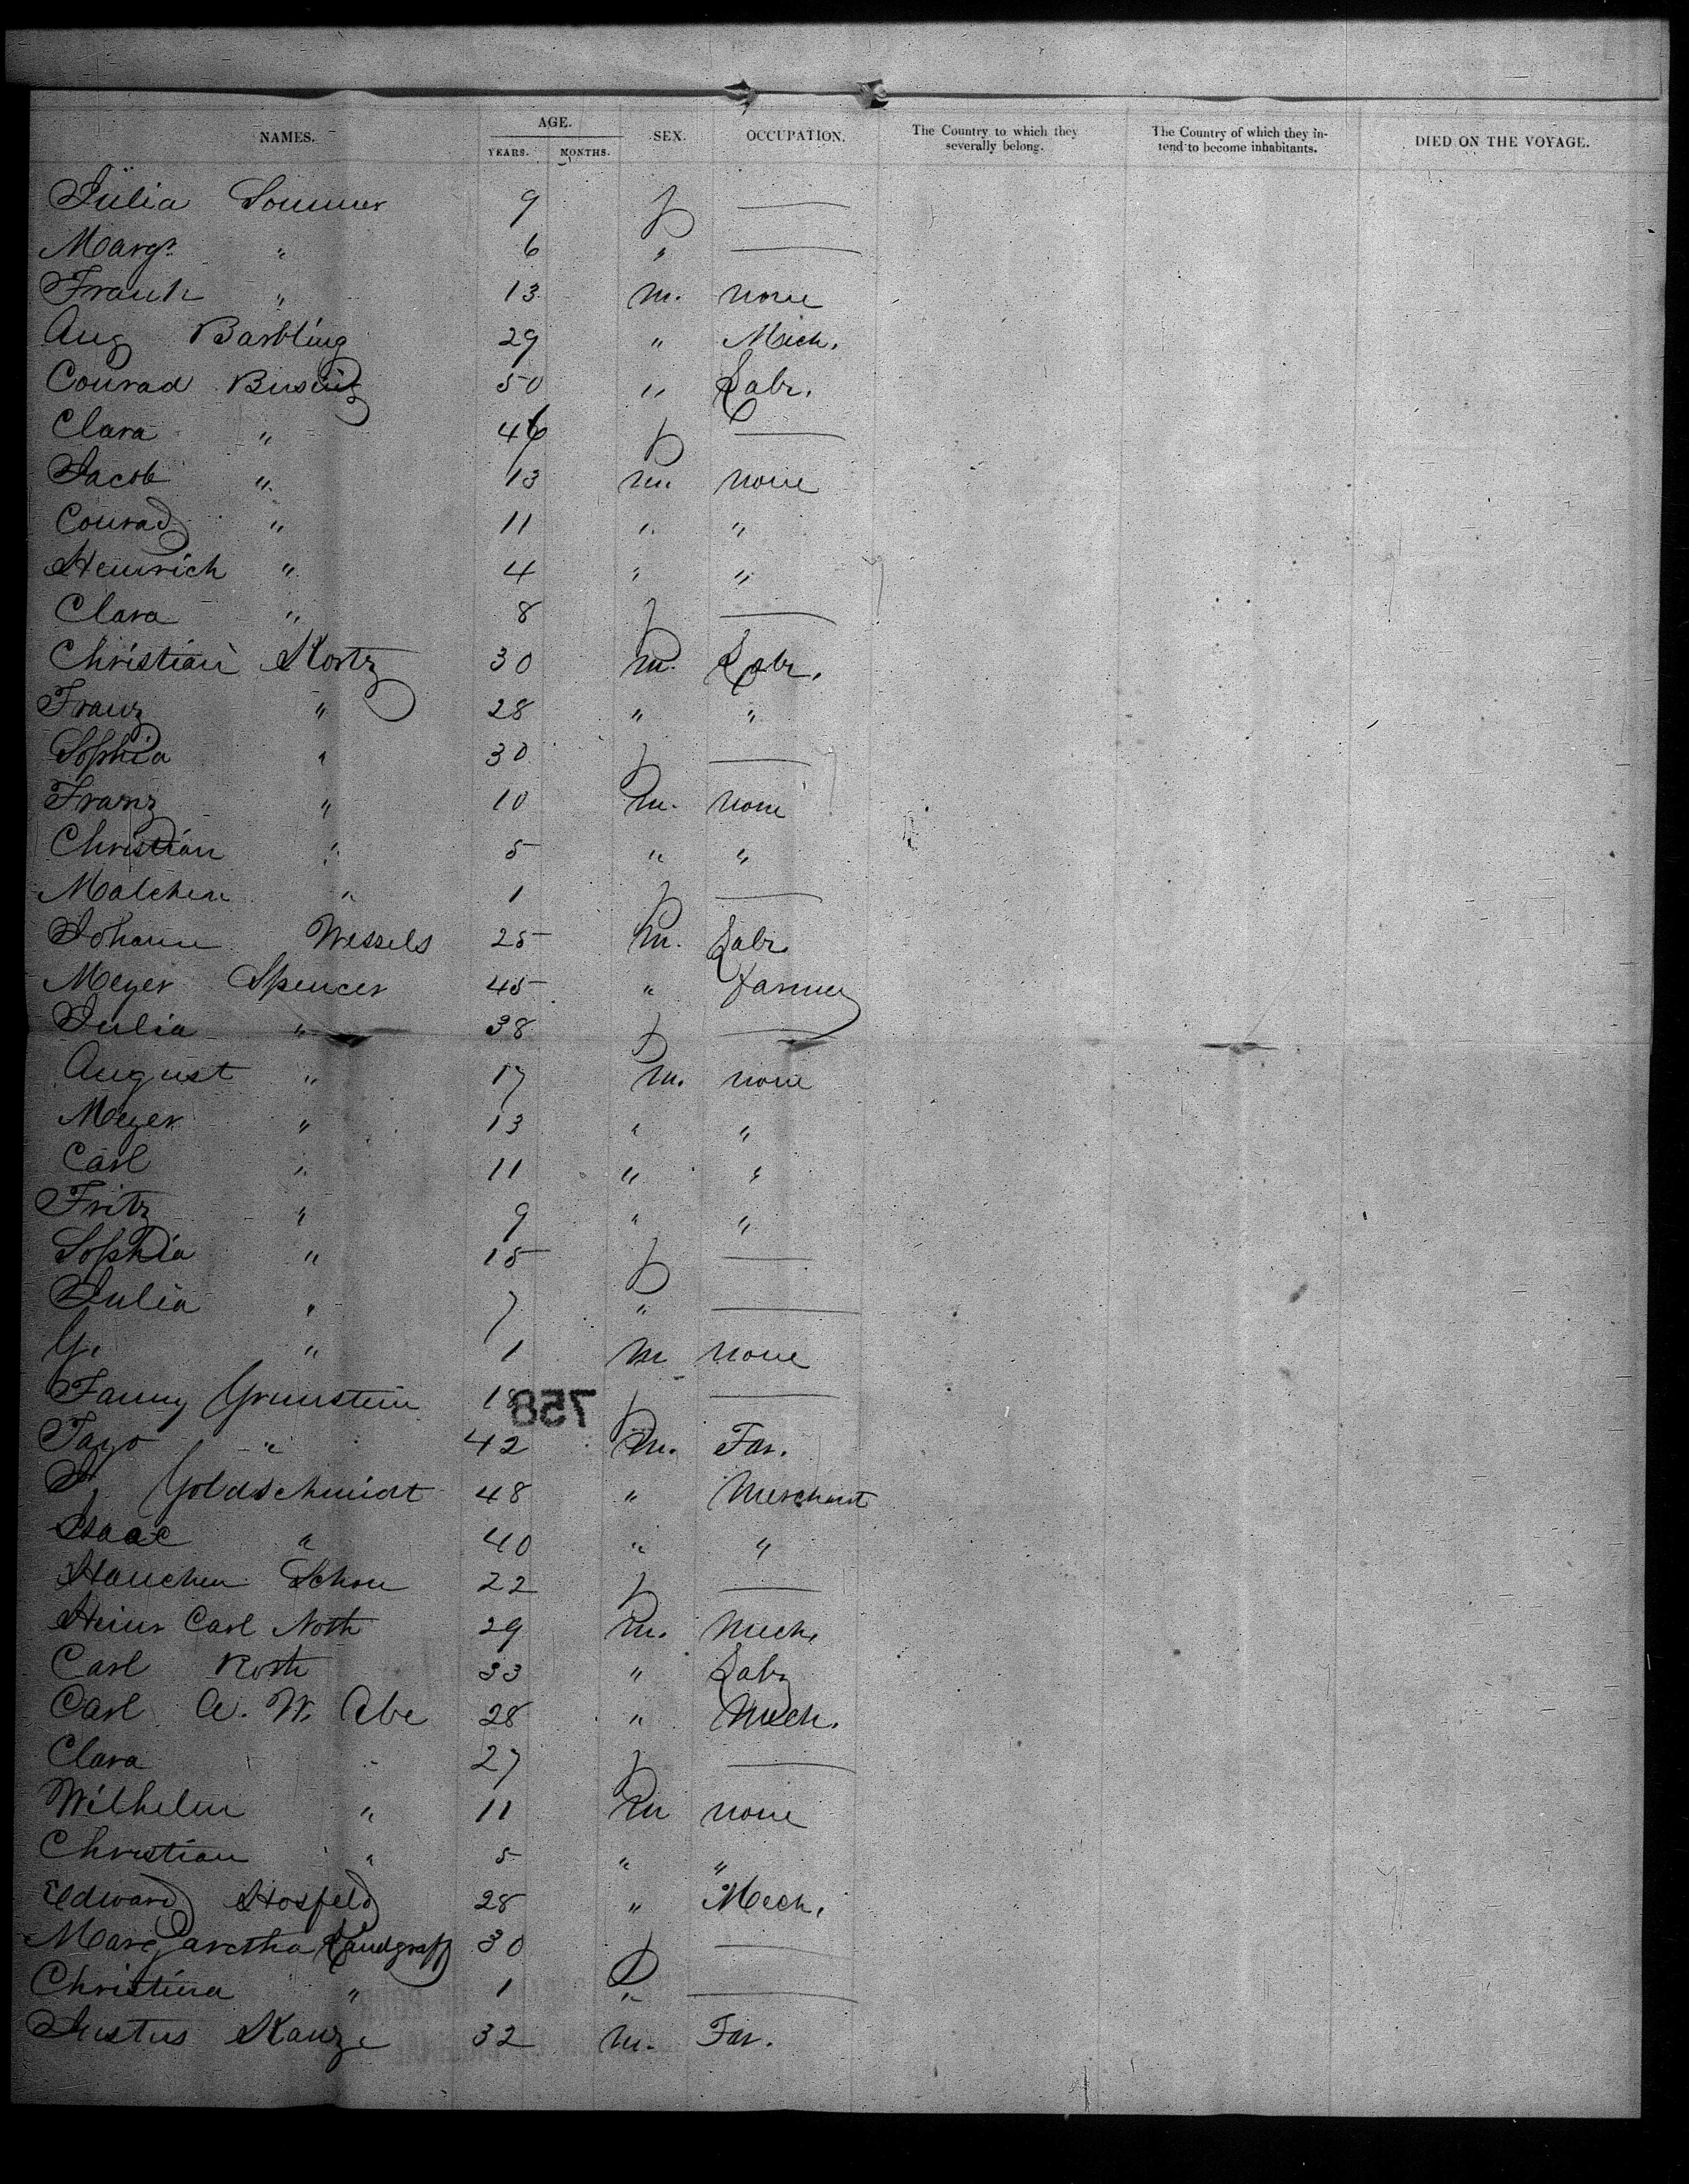 NAMES. AGE. SEX. OCCUPATION. The Country to which they severally belong. The Country of which they intend to become inhabitants. DIED ON THE VOYAGE.
YEARS. MONTHS.
Julia Sommer 9 f —
Margt " 6 " —
Frank " 13 m. none
Aug Barbling 29 " Mech.
Conrad Busing 50 " Labr.
Clara " 46 f —
Jacob " 13 m none
Conrad " 11 " "
Heinrich " 4 " "
Clara " 8 f —
Christian Kortz 30 m. Labr.
Franz " 28 " "
Sophia " 30 f —
Franz " 10 m. none
Christian " 5 " "
Malchen " 1 f —
Johann Wessels 25 m. Labr.
Meyer Spencer 45 " Farmer
Julia " 38 f —
August " 17 m. none
Meyer " 13 " "
Carl " 11 " "
Fritz " 9 " "
Sophia " 15 f —
Julia " 7 " —
G. " 1 m none
Fanny Grunstein 18 f —
758
" 42 m. Far.
Goldschmidt 48 " Merchant
Isaac " 40 " "
Hanchen Schon 22 f —
Heinr Carl Noth 29 m. Mech.
Carl Roth 33 " Labr
Carl A. W. Abe 28 " Mech.
Clara " 27 f —
Wilhelm " 11 m none
Christian " 5 " "
Edward Hosfeld 28 " Mech.
Margaretha Landgraff 30 f —
Christina " 1 " —
Justus Kanze 32 m. Far.